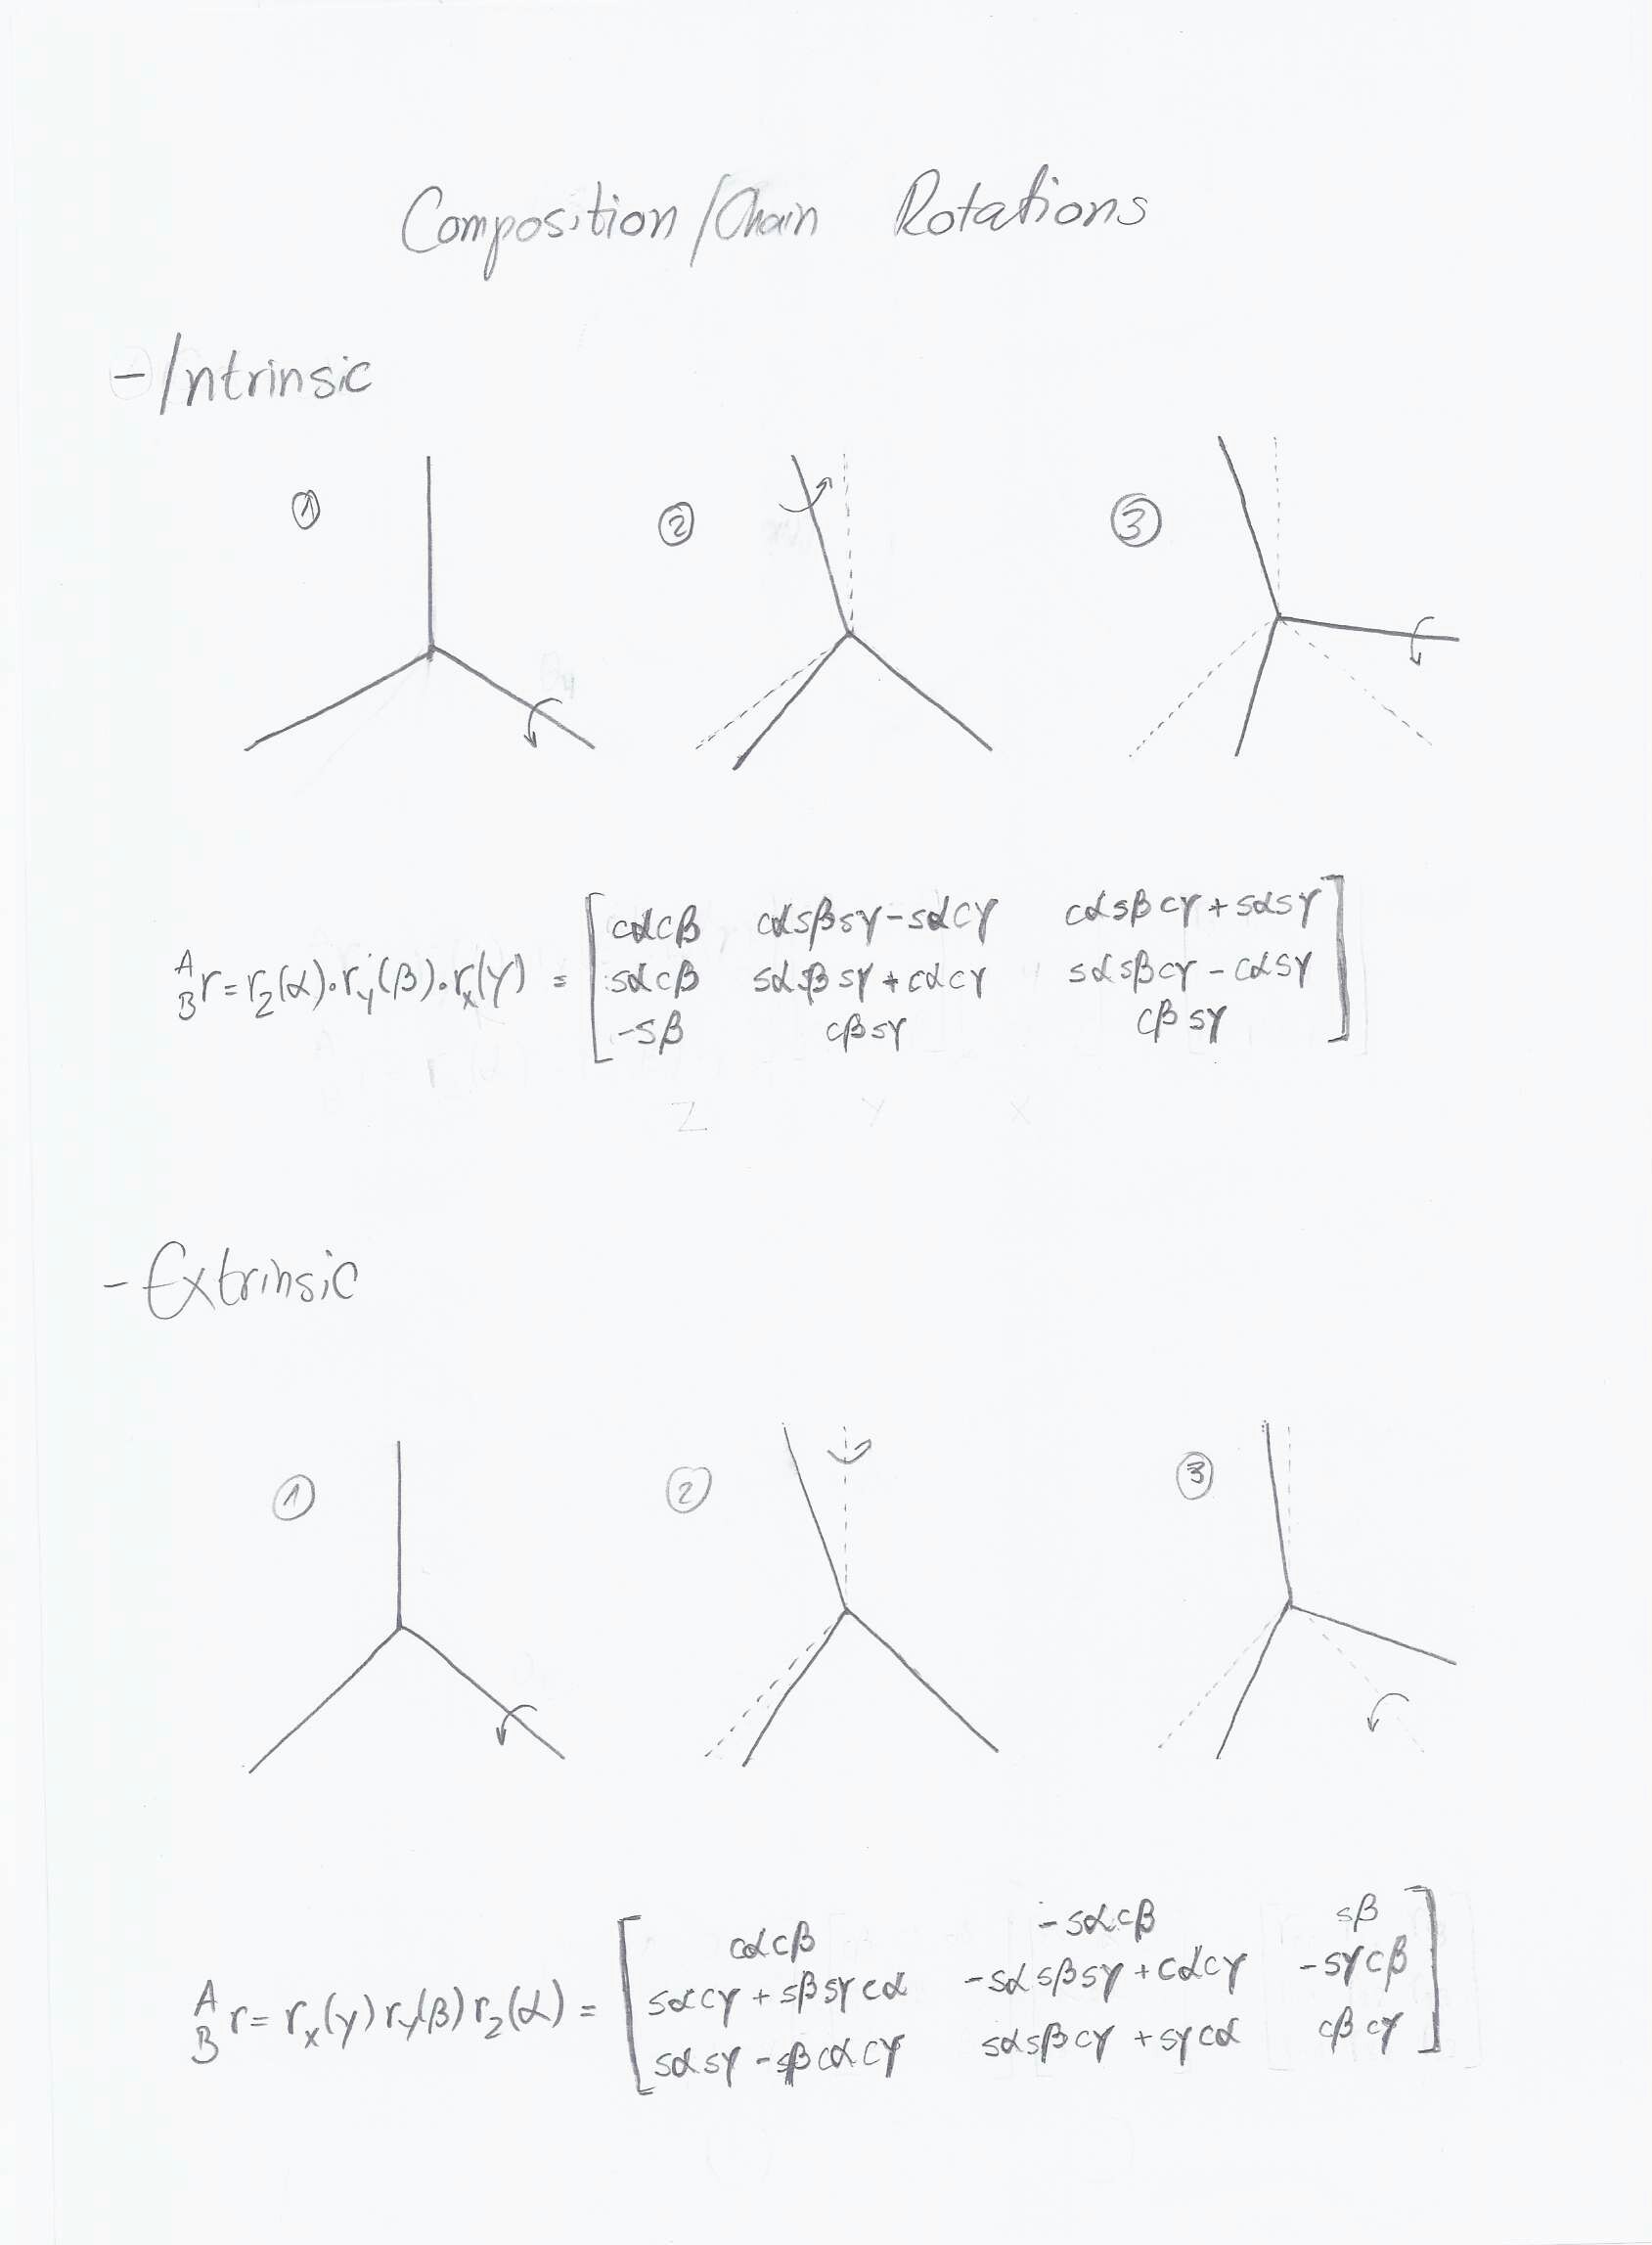 Composition/Chain Rotations
-Intrinsic
1 2 3
A
B r = rz(α)·ry(β)·rx(γ) =
[ cαcβ cαsβsγ-sαcγ cαsβcγ+sαsγ
sαcβ sαsβsγ+cαcγ sαsβcγ-cαsγ
-sβ cβsγ cβsγ ]
Z Y X
-Extrinsic
1 2 3
A
B r = rx(γ)ry(β)rz(α) =
[ cαcβ -sαcβ sβ
sαcγ+sβsγcα -sαsβsγ+cαcγ -sγcβ
sαsγ-sβcαcγ sαsβcγ+sγcα cβcγ ]